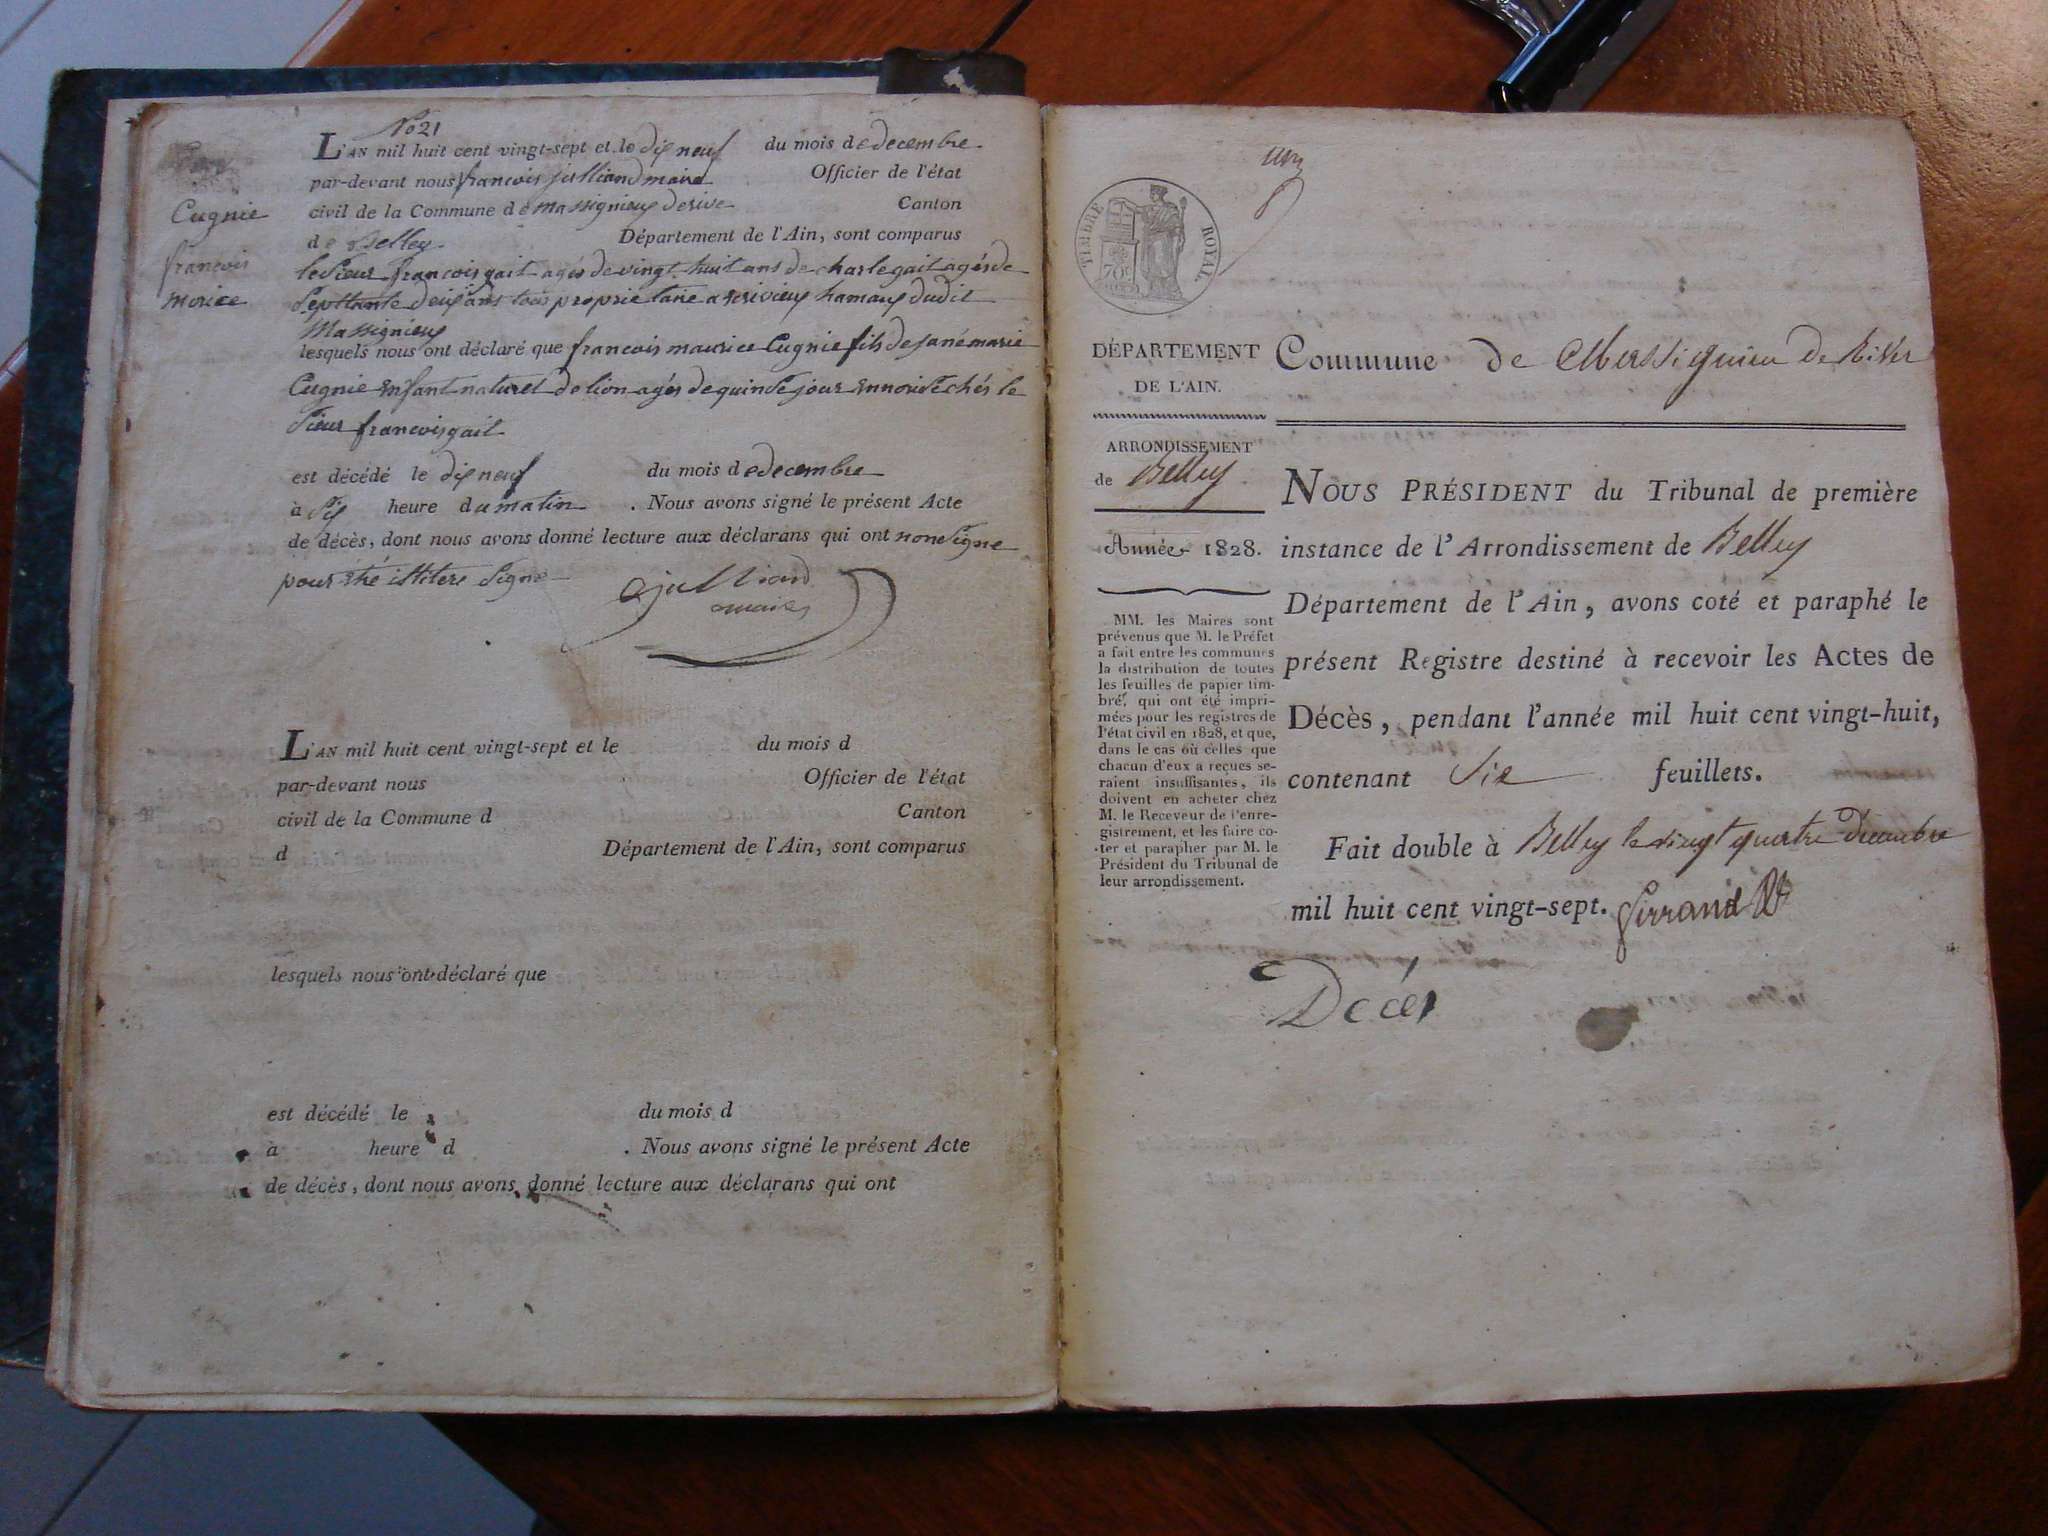 No 21
L'AN mil huit cent vingt-sept et le dix neuf du mois de decembre
par-devant nous francois julliand maire Officier de l'état
civil de la Commune de massignieux derive Canton
de Belley Département de l'Ain, sont comparus
le Sieur francois gait agés de vingt huit ans de charle gait agés de
Septtante deux ans tous proprietaire a hamaux dudit
Massignieux
lesquels nous ont déclaré que francois maurice Cugnie fils de jané marie
Cugnie enfant naturel de lion agés de quinse jour ennourise chés le
Sieur francois gait
est décédé le dix neuf du mois de decembre
à Six heure du matin . Nous avons signé le présent Acte
de décès, dont nous avons donné lecture aux déclarans qui ont non Signe
pour Signe
julliand
maire
Cugnie
francois
morice
L'AN mil huit cent vingt-sept et le du mois d
par-devant nous Officier de l'état
civil de la Commune d Canton
d Département de l'Ain, sont comparus
lesquels nous ont déclaré que
est décédé le du mois d
à heure d . Nous avons signé le présent Acte
de décès, dont nous avons donné lecture aux déclarans qui ont
TIMBRE ROYAL
70c
DÉPARTEMENT
DE L'AIN.
ARRONDISSEMENT
de Belley
Année 1828.
MM. les Maires sont
prévenus que M. le Préfet
a fait entre les communes
la distribution de toutes
les feuilles de papier tim-
bré, qui ont été impri-
mées pour les registres de
l'état civil en 1828, et que,
dans le cas où celles que
chacun d'eux a reçues se-
raient insuffisantes, ils
doivent en acheter chez
M. le Receveur de l'enre-
gistrement, et les faire co-
ter et parapher par M. le
Président du Tribunal de
leur arrondissement.
Commune de Massignieu de Rives
NOUS PRÉSIDENT du Tribunal de première
instance de l'Arrondissement de Belley
Département de l'Ain, avons coté et paraphé le
présent Registre destiné à recevoir les Actes de
Décès, pendant l'année mil huit cent vingt-huit,
contenant Six feuillets.
Fait double à Belley le vingt quatre Decembre
mil huit cent vingt-sept.
Décès